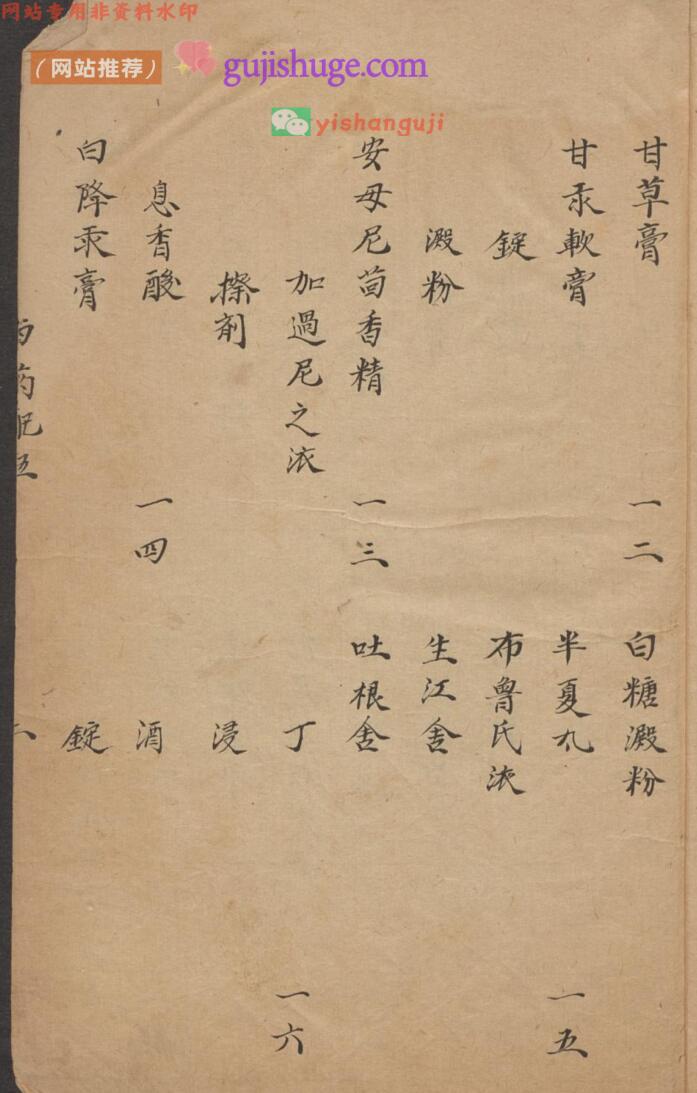 网站专用非资料水印
(网站推荐)
gujishuge.com
yishanguji
甘草膏 一二
甘汞軟膏
錠
澱粉
安母尼茴香精 一三
加過尼之液
擦剤
息香酸 一四
白降汞膏
白糖澱粉
半夏丸 一五
布魯氏液
生江舎
吐根舎
丁 一六
浸
酒
錠